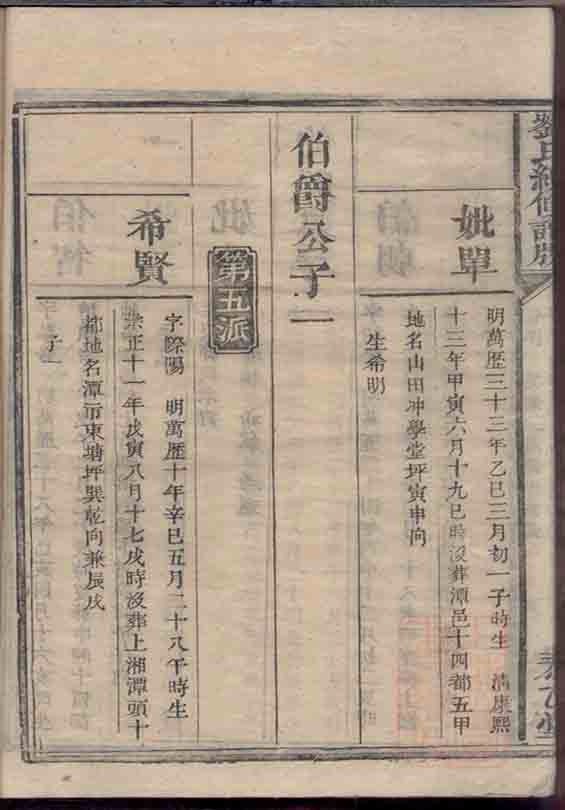 劉氏續修譜牒
妣單
明萬歷三十三年乙巳三月初一子時生 淸康熙
十三年甲寅六月十九巳時沒葬潭邑十四都五甲
地名山田冲學堂坪寅申向
生希明
伯爵公子一
第五派
希賢
字際陽 明萬歷十年辛巳五月二十八午時生
崇正十一年戊寅八月十七戌時沒葬上湘潭頭十
都地名潭市東塘坪巽乾向兼辰戌
子一